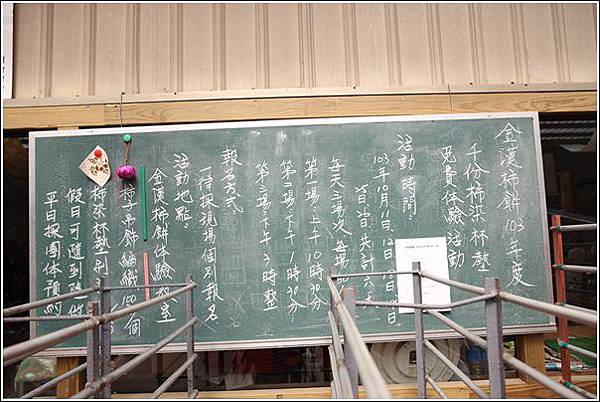 金漢柿餅103年度
千份柿染杯墊
免費體驗活動
活動時間:
103年10月11日、12日、18日、
每天三場次,每場
第一場:上午10時30分
第二場:下午1時30分
第三場:下午3時整
報名方式:
一律採現場個別報名
活動地點:
金漢柿餅體驗教室
柿子吊飾編織150/個
柿染杯墊
假日可隨到隨做
平日採團體預約